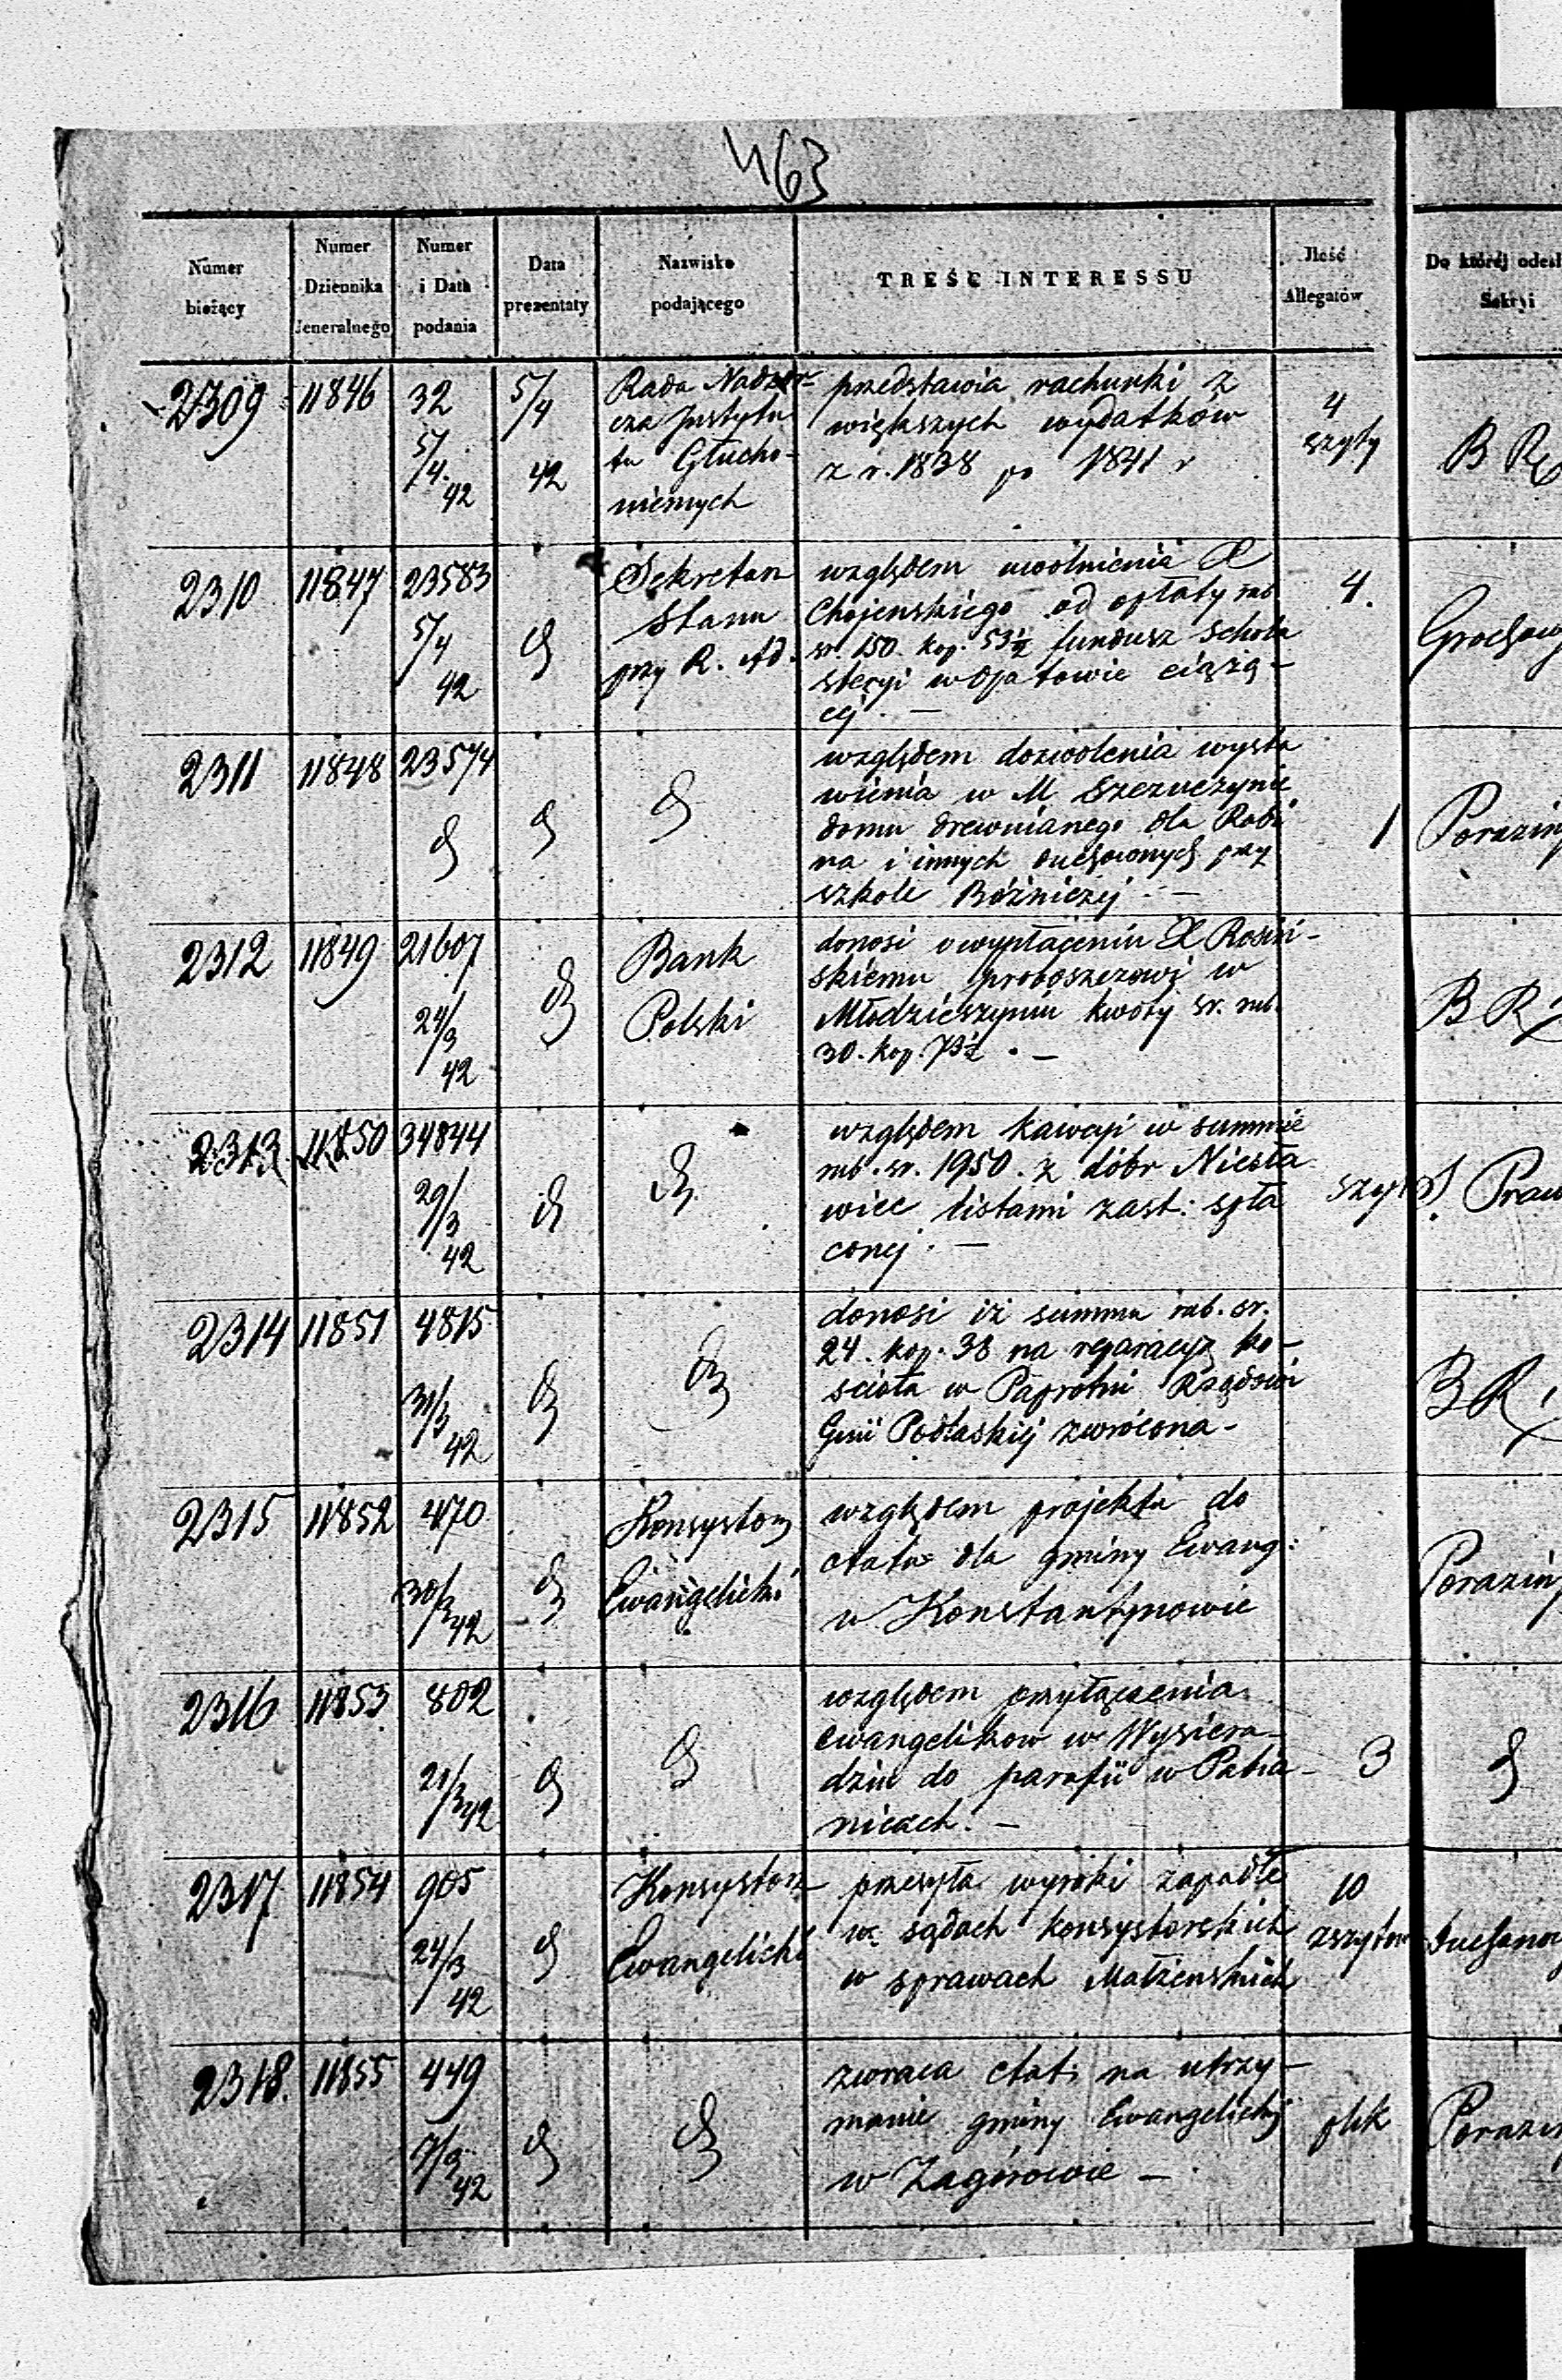 463
Numer bieżący
Numer Dziennika Jeneralnego
Numer i Data podania
Data prezentaty
Nazwisko podającego
TREŚĆ INTERESSU
Ilość Allegatów
Do któréj odesł
Sekcyi
2309 11846 32 5/4 42 5/4 42
Rada Nadzor-
cza Instytu
tu Głucho-
niemych
przedstawia rachunki z
większych wydatków
z r. 1838 po 1841 r
4
szyty
B R
2310 11847 23583 5/4 42 d
Sekretarz
Stanu
przy R. Ad.
względem uwolnienia X
Chojenskiego od opłaty rub.
sr. 150. kop. 53½ fundusz Schola
steryi w Opatowie ciążą-
cej. —
4.
2311 11848 23574 d d
d
względem dozwolenia wysta
wienia w M Szczuczynie
domu drewnianego dla Rabi
na i innych duchownych przy
szkole Bóżniczej. —
1
Porazin
2312 11849 21607 24/3 42 d
Bank
Polski
donosi o wypłaceniu X Rosiń-
skiemu proboszczowi w
Młodzieszynie kwoty sr. rub.
30. kop. 73½. —
B R
2313 11850 34844 29/3 42 d
d
względem kawcyi w summie
rub. sr. 1950. z dóbr Niesła
wice listami zast: spła
conej. —
Praw
2314 11851 4815 31/3 42 d
d
donosi iż summa rub. sr.
24. kop. 38 na reparacyą ko-
scioła w Paprotni Rządowi
Gnii Podlaskiej zwrócona -
B R
2315 11852 470 30/3 42 d
Konsystorz
Ewangelicki
względem projektu do
etatu dla gminy Ewang:
w Konstantynowie
Porazin
2316 11853 802 21/3 42 d
d
względem przyłączenia
ewangelikow w Wysiera-
dziu do parafii w Pabia-
nicach. —
3
d
2317 11854 905 24/3 42 d
Konsystorz
Ewangelicki
przesyła wyroki zapadłe
w sądach konsystorskich
w sprawach Małżenskich
10
zszytow
2318. 11855 449 7/3 42 d
d
zwraca etat na utrzy-
manie gminy Ewangelickiej
w Zagórowie —
plik
Porazin